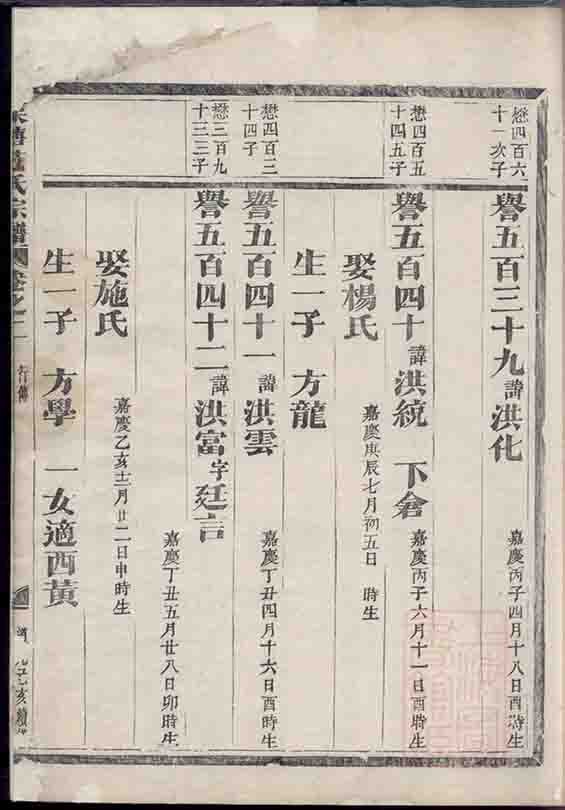 懋四百六
十一次子
譽五百三十九諱洪化
嘉慶丙子四月十八日酉時生
懋四百五
十四五子
譽五百四十諱洪統 下倉
嘉慶丙子六月十一日酉時生
娶楊氏
嘉慶庚辰七月初五日 時生
生一子 方龍
懋四百三
十四子
譽五百四十一諱洪雲
嘉慶丁丑四月十六日酉時生
懋三百九
十三三子
譽五百四十二諱洪富字廷言
嘉慶丁丑五月廿八日卯時生
娶施氏
嘉慶乙亥十二月廿二日申時生
生一子 方學 一女適西黃
氏宗譜 卷之二
行傳
乙亥續